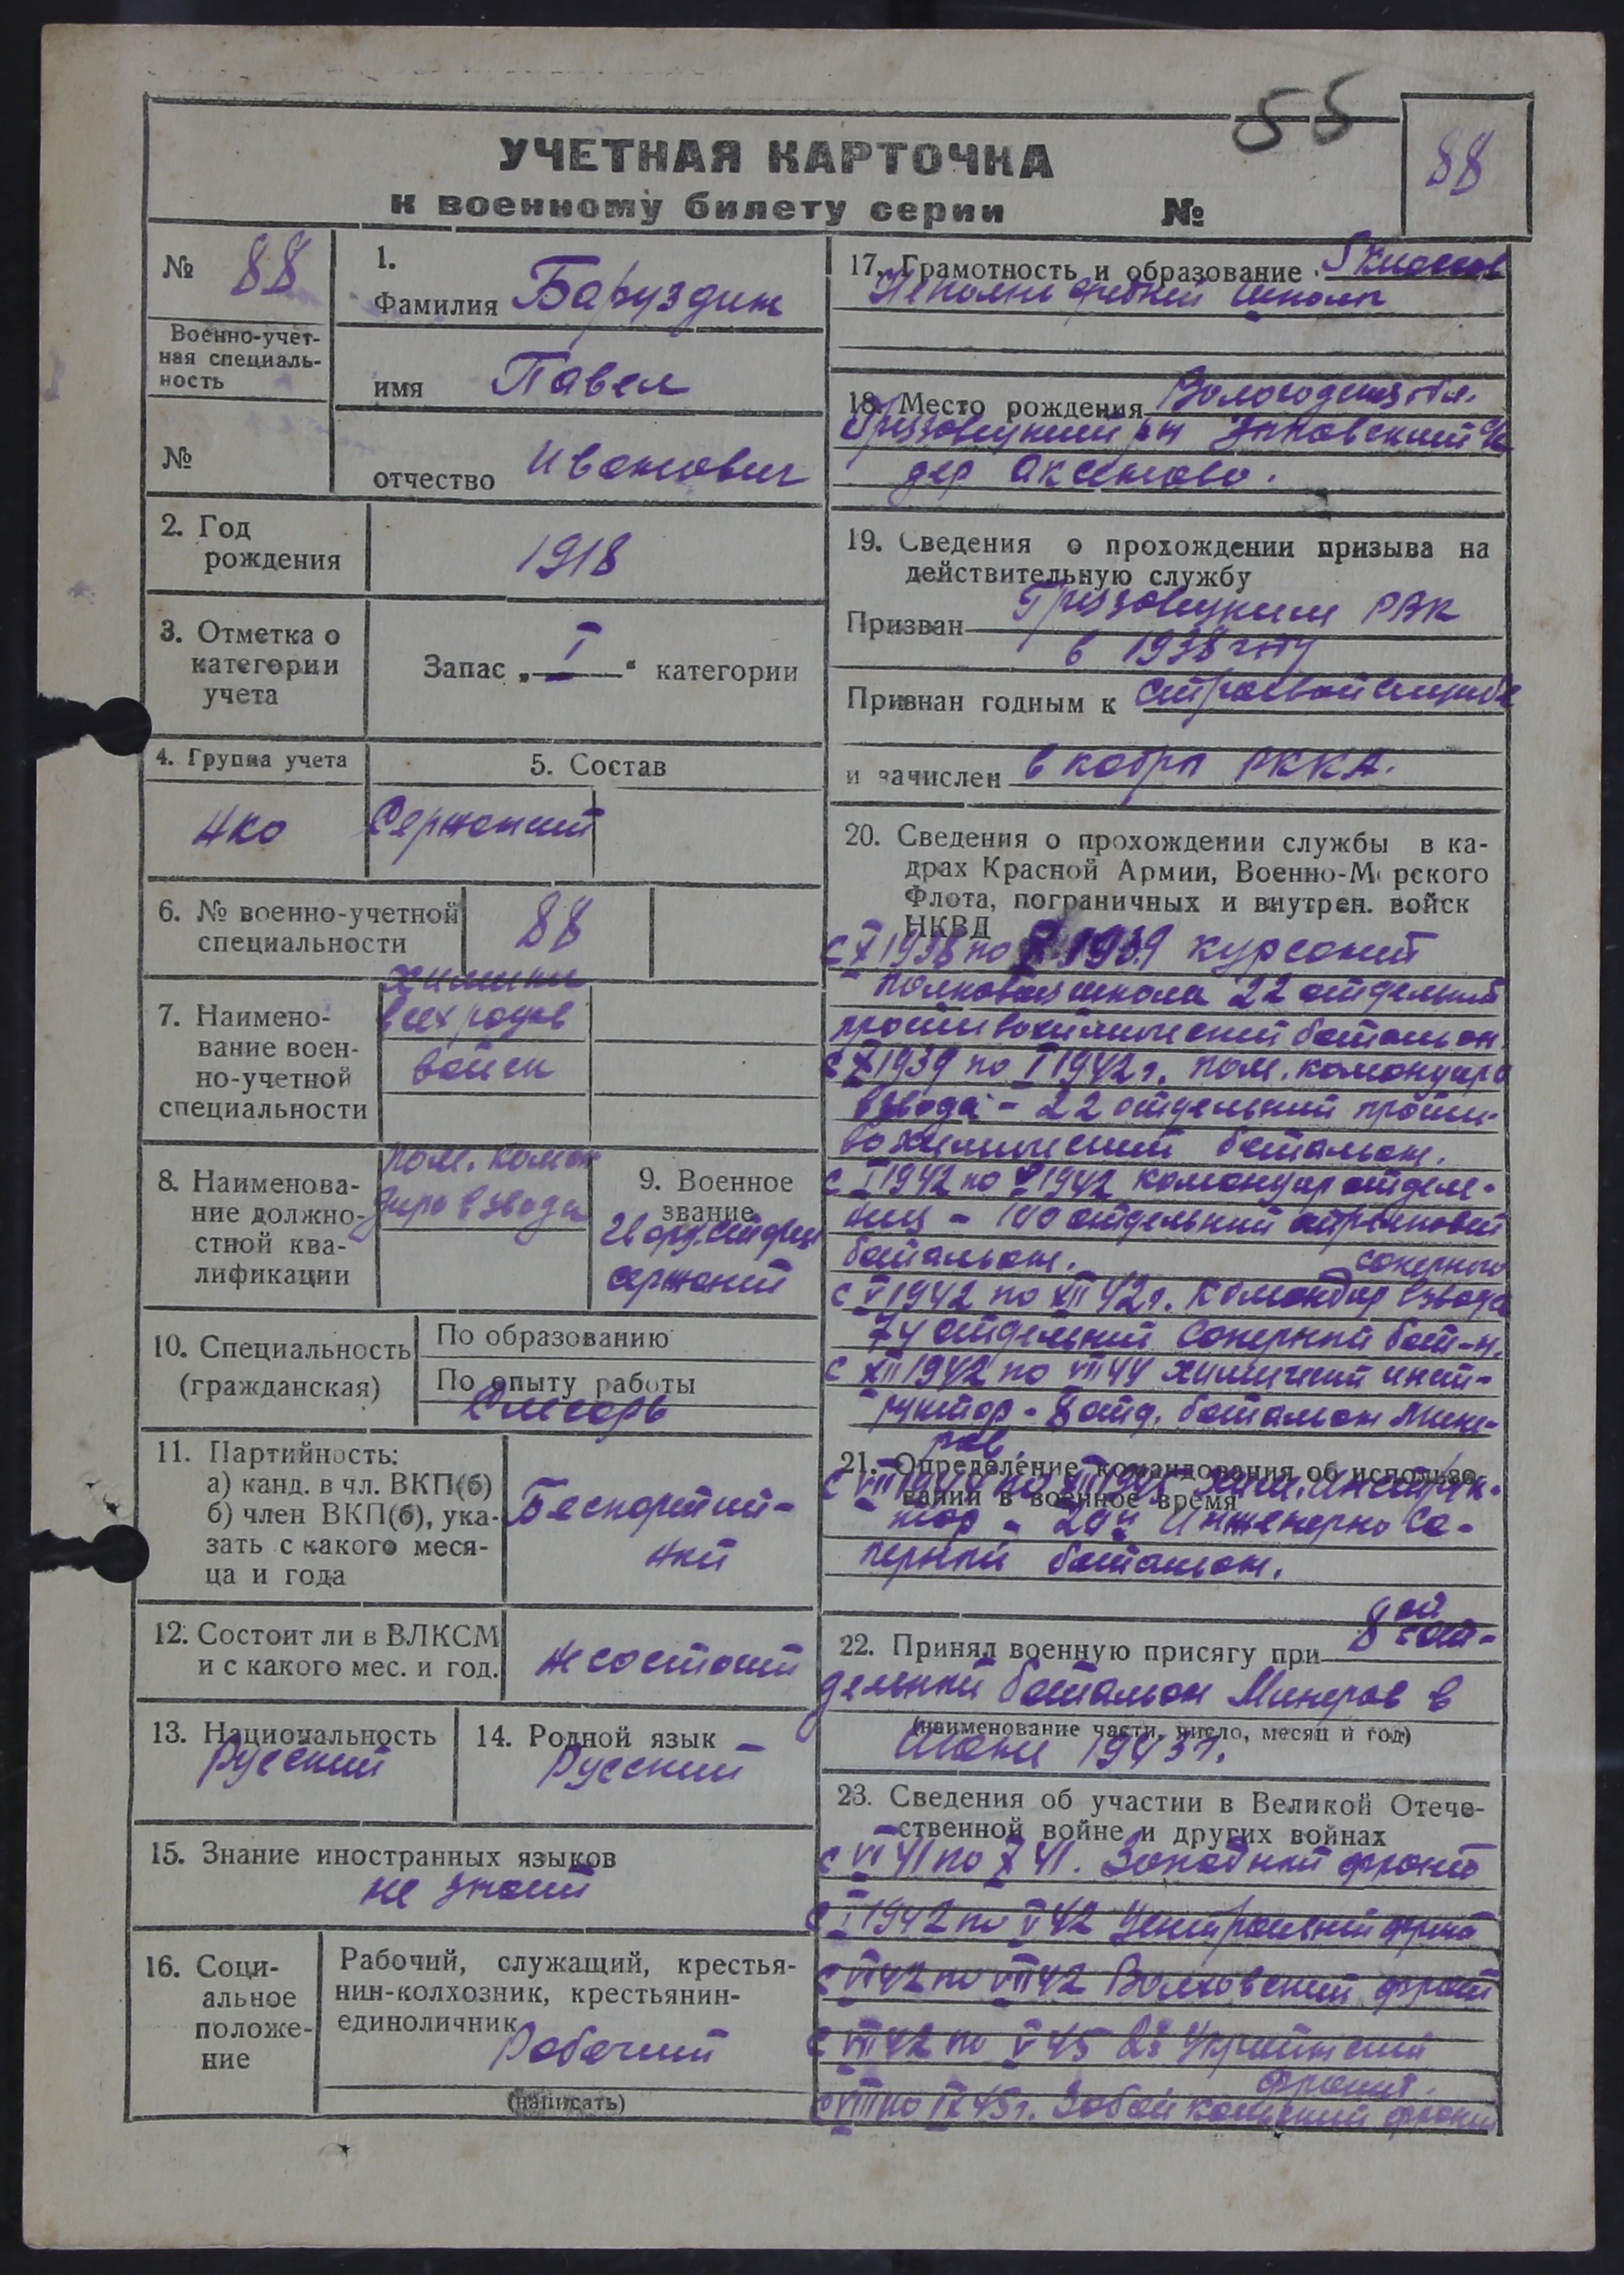 55
88
УЧЕТНАЯ КАРТОЧКА
к военному билету серии №
№ 88
Военно-учет-
ная специаль-
ность
№
1.
Фамилия Баруздин
имя Павел
отчество Иванович
2. Год
рождения
1918
3. Отметка о
категории
учета
Запас „ I “ категории
4. Группа учета
НКО
5. Состав
Сержант
6. № военно-учетной
специальности
88
7. Наимено-
вание воен-
но-учетной
специальности
химики
всех родов
войск
8. Наименова-
ние должно-
стной ква-
лификации
пом. коман
дира взвода
9. Военное
звание
Гвард. старш
сержант
10. Специальность
(гражданская)
По образованию
По опыту работы
Слесарь
11. Партийность:
а) канд. в чл. ВКП(б)
б) член ВКП(б), ука-
зать с какого меся-
ца и года
Беспартий-
ный
12. Состоит ли в ВЛКСМ
и с какого мес. и год.
не состоит
13. Национальность
Русский
14. Родной язык
Русский
15. Знание иностранных языков
не знает
16. Соци-
альное
положе-
ние
Рабочий, служащий, крестья-
нин-колхозник, крестьянин-
единоличник
Рабочий
(написать)
17. Грамотность и образование классов
средней школы
18. Место рождения Вологодская обл.
Грязовецкий р-н
дер Аксеново.
19. Сведения о прохождении призыва на
действительную службу
Призван Грязовецким РВК
в 1938 году
Признан годным к строевой службе
и зачислен в кадры РККА.
20. Сведения о прохождении службы в ка-
драх Красной Армии, Военно-Морского
Флота, пограничных и внутрен. войск
НКВД
с X 1938 по X 1939 курсант
полковая школа 22 отдельный
противохимический батальон
с X 1939 по I 1942 г. пом. командира
взвода - 22 отдельный проти-
вохимический батальон.
с I 1942 по V 1942 командир отделе-
ния - 100 отдельный
батальон. саперного
с V 1942 по XII 42 г. командир взвода
74 отдельный саперный бат-н.
с XII 1942 по VIII 44 химический инст-
руктор - 8 отд. батальон мине-
ров.
21. Определение командования об использо-
вании в военное время
с VIII 1944 по 1945 хим. инструк-
тор - Инженерно са-
перный батальон.
22. Принял военную присягу при 8ой от-
дельный батальон минеров в
(наименование части, число, месяц и год)
1943 г.
23. Сведения об участии в Великой Отече-
ственной войне и других войнах
с VI 41 по X 41. Западный фронт
с I 1942 по V 42 Центральный фронт
с VI 42 по VIII 42 Волховский фронт
с VIII 42 по V 45 2й Украинский
фронт.
с VIII по IX 45 г. Забайкальский фронт